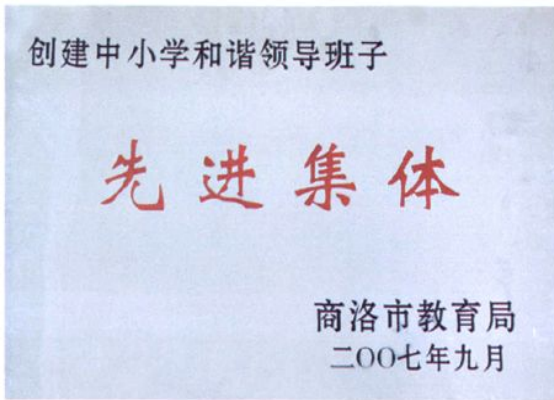 创建中小学和谐领导班子
先进集体
商洛市教育局
二〇〇七年九月